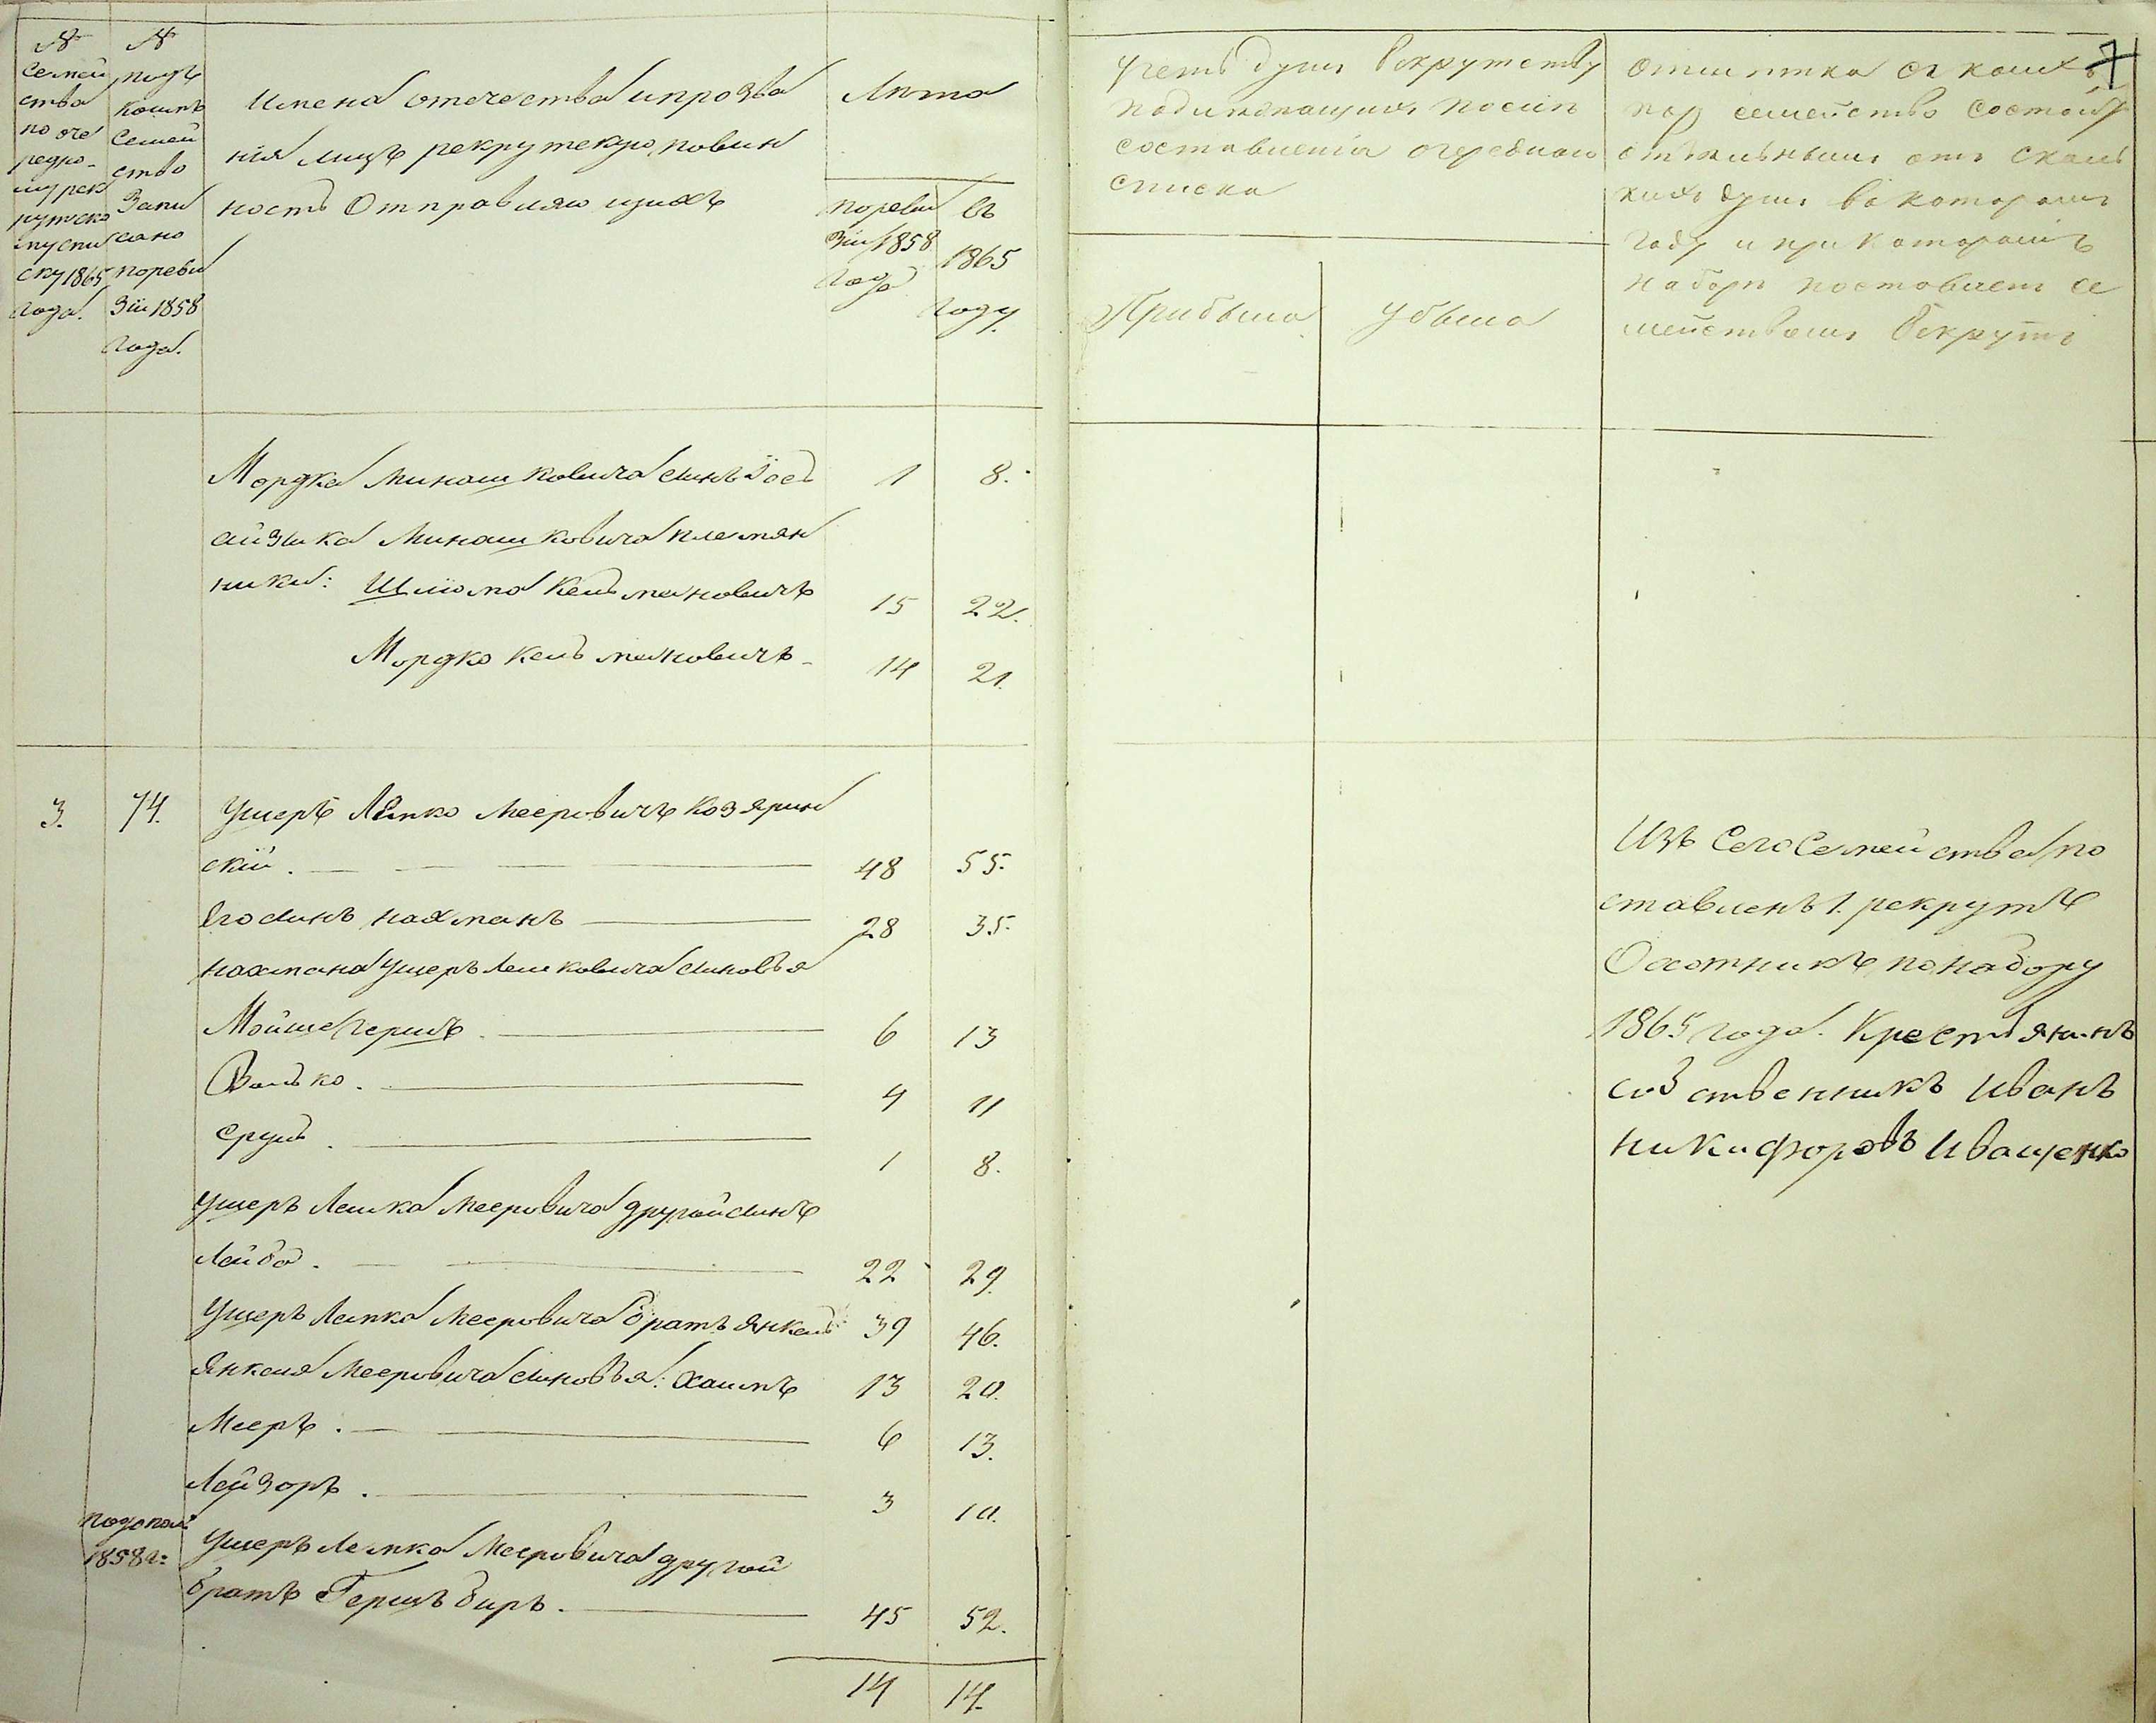 №
семей
ства
по оче
редно-
му рек
рутско
му спи
ску 1865
года.
№
подъ
коимъ
семей
ство
запи
сано
по реви
зіи 1858
года.
Имена отечества и прозва
нія лицъ рекрутскую повин
ность отправляющихъ
Лѣта
по реви
зіи 1858
года
въ
1865
году.
Учетъ душъ рекрутству
подлежащихъ послѣ
составленія очереднаго
списка
Прибыло
Убыло
Отмѣтка съ какихъ
поръ семейство состоитъ
отдѣльнымъ отъ сколь
кихъ душъ въ которомъ
году и при которомъ
наборѣ поставленъ се
мействомъ рекрутъ
7
Мордка Минашковича сынъ Іось 1 8.
Айзика Минашковича племян
ники: Шліома Кельмановичъ 15 22.
Мордко Кельмановичъ 14 21.
3. 74. Ушеръ Лемко Мееровичъ Козярин
скій. 48 55.
Его сынъ Нахманъ 28 35.
Нахмана Ушеръ Лемковича сыновья
Мойше Гершъ. 6 13
Волько. 4 11
Сруль. 1 8.
Ушеръ Лемка Мееровича другой сынъ
Лейба. 22 29.
Ушеръ Лемка Мееровича братъ Янкель 39 46.
Янкеля Мееровича сыновья: Хаимъ 13 20.
Мееръ. 6 13.
Лейзоръ. 3 10.
1858 г:
Ушеръ Лемка Мееровича другой
братъ Гершъ Беръ. 45 52.
14 14.
Изъ сего семейства по
ставленъ 1. рекрутъ
Охотникъ по набору
1865 года. Крестьянинъ
собственникъ Иванъ
Никифоровъ Иващенко